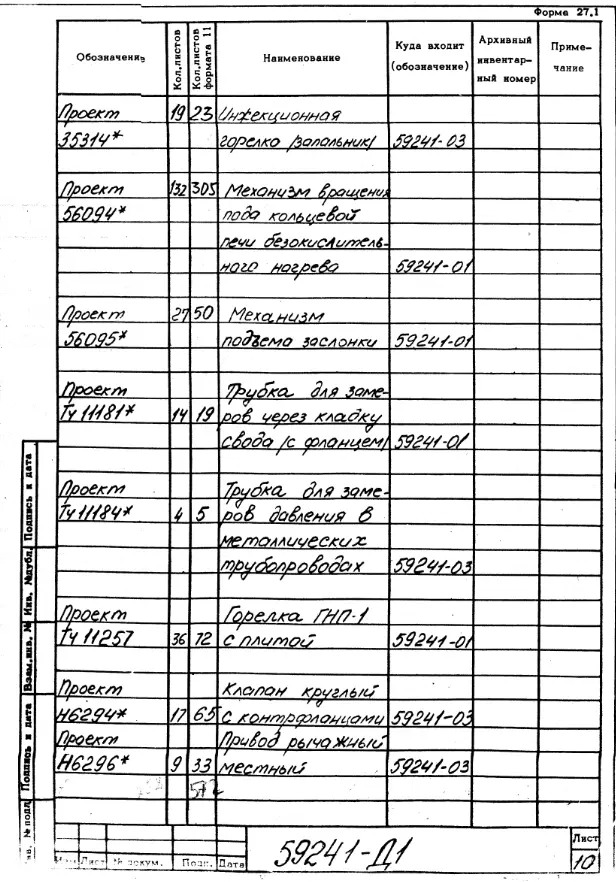 Форма 27.1
Обозначение Кол.листов Кол.листов формата 11 Наименование Куда входит (обозначение) Архивный инвентарный номер Примечание
Проект 19 23 Инжекционная
35314* горелка /запальник/ 59241-03
Проект 132 305 Механизм вращения
56094* пода кольцевой
печи безокислитель-
ного нагрева 59241-01
Проект 27 50 Механизм
56095* подъема заслонки 59.241-01
Проект Трубка для заме-
Ту 11181* 14 19 ров через кладку
свода /с фланцем/ 59241-01
Проект Трубка для заме-
Ту 11184* 4 5 ров давления в
металлических
трубопроводах 59241-03
Проект Горелка ГНП-1
Ту 11257 36 72 с плитой 59241-01
Проект Клапан круглый
Н6294* 17 65 с контрфланцами 59241-03
Проект Привод рычажный
Н6296* 9 33 местный 59241-03
Подпись и дата
Инв. №дубл.
Взам.инв. №
Подпись и дата
Инв. № подл.
Изм Лист № докум. Подп. Дата
59241-Д1
Лист
10